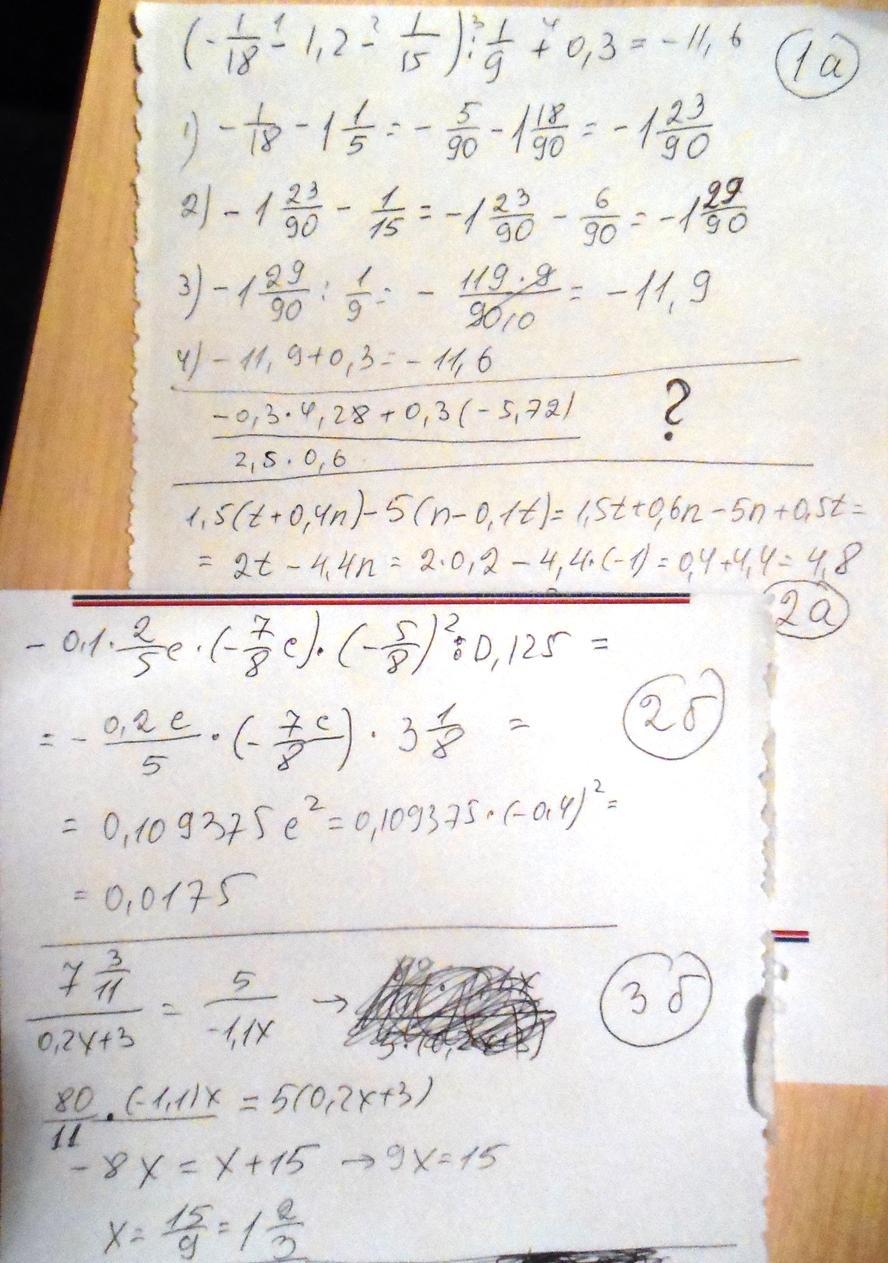 (-1/18 - 1,2 - 1/15) : 1/9 + 0,3 = -11,6
1а
1) -1/18 - 1 1/5 = -5/90 - 1 18/90 = -1 23/90
2) -1 23/90 - 1/15 = -1 23/90 - 6/90 = -1 29/90
3) -1 29/90 : 1/9 = - 119·9/90 10 = -11,9
4) -11,9+0,3 = -11,6
-0,3·4,28 + 0,3(-5,72)
?
2,5·0,6
1,5(t+0,4n)-5(n-0,1t)=1,5t+0,6n-5n+0,5t=
= 2t - 4,4n = 2·0,2 - 4,4·(-1) = 0,4+4,4 = 4,8
2а
-0,1·2/5 c·(-7/8 c)·(-5/8)²:0,125 =
2б
= - 0,2c/5 · (-7c/8) · 3 1/8 =
= 0,109375 c² = 0,109375·(-0,4)² =
= 0,0175
7 3/11 / 0,2x+3 = 5 / -1,1x →
3б
80/11 · (-1,1)x = 5(0,2x+3)
-8x = x+15 → 9x=15
x = 15/9 = 1 2/3